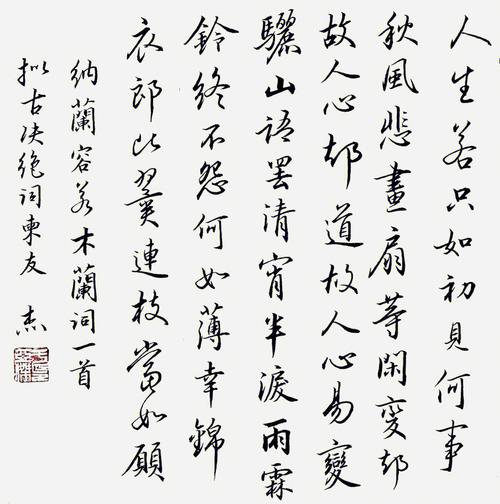 人生若只如初見何事
秋風悲畫扇等閑變却
故人心却道故人心易變
驪山語罷清宵半淚雨霖
鈴終不怨何如薄幸錦
衣郎比翼連枝當如願
納蘭容若木蘭詞一首
拟古决絶詞柬友 杰